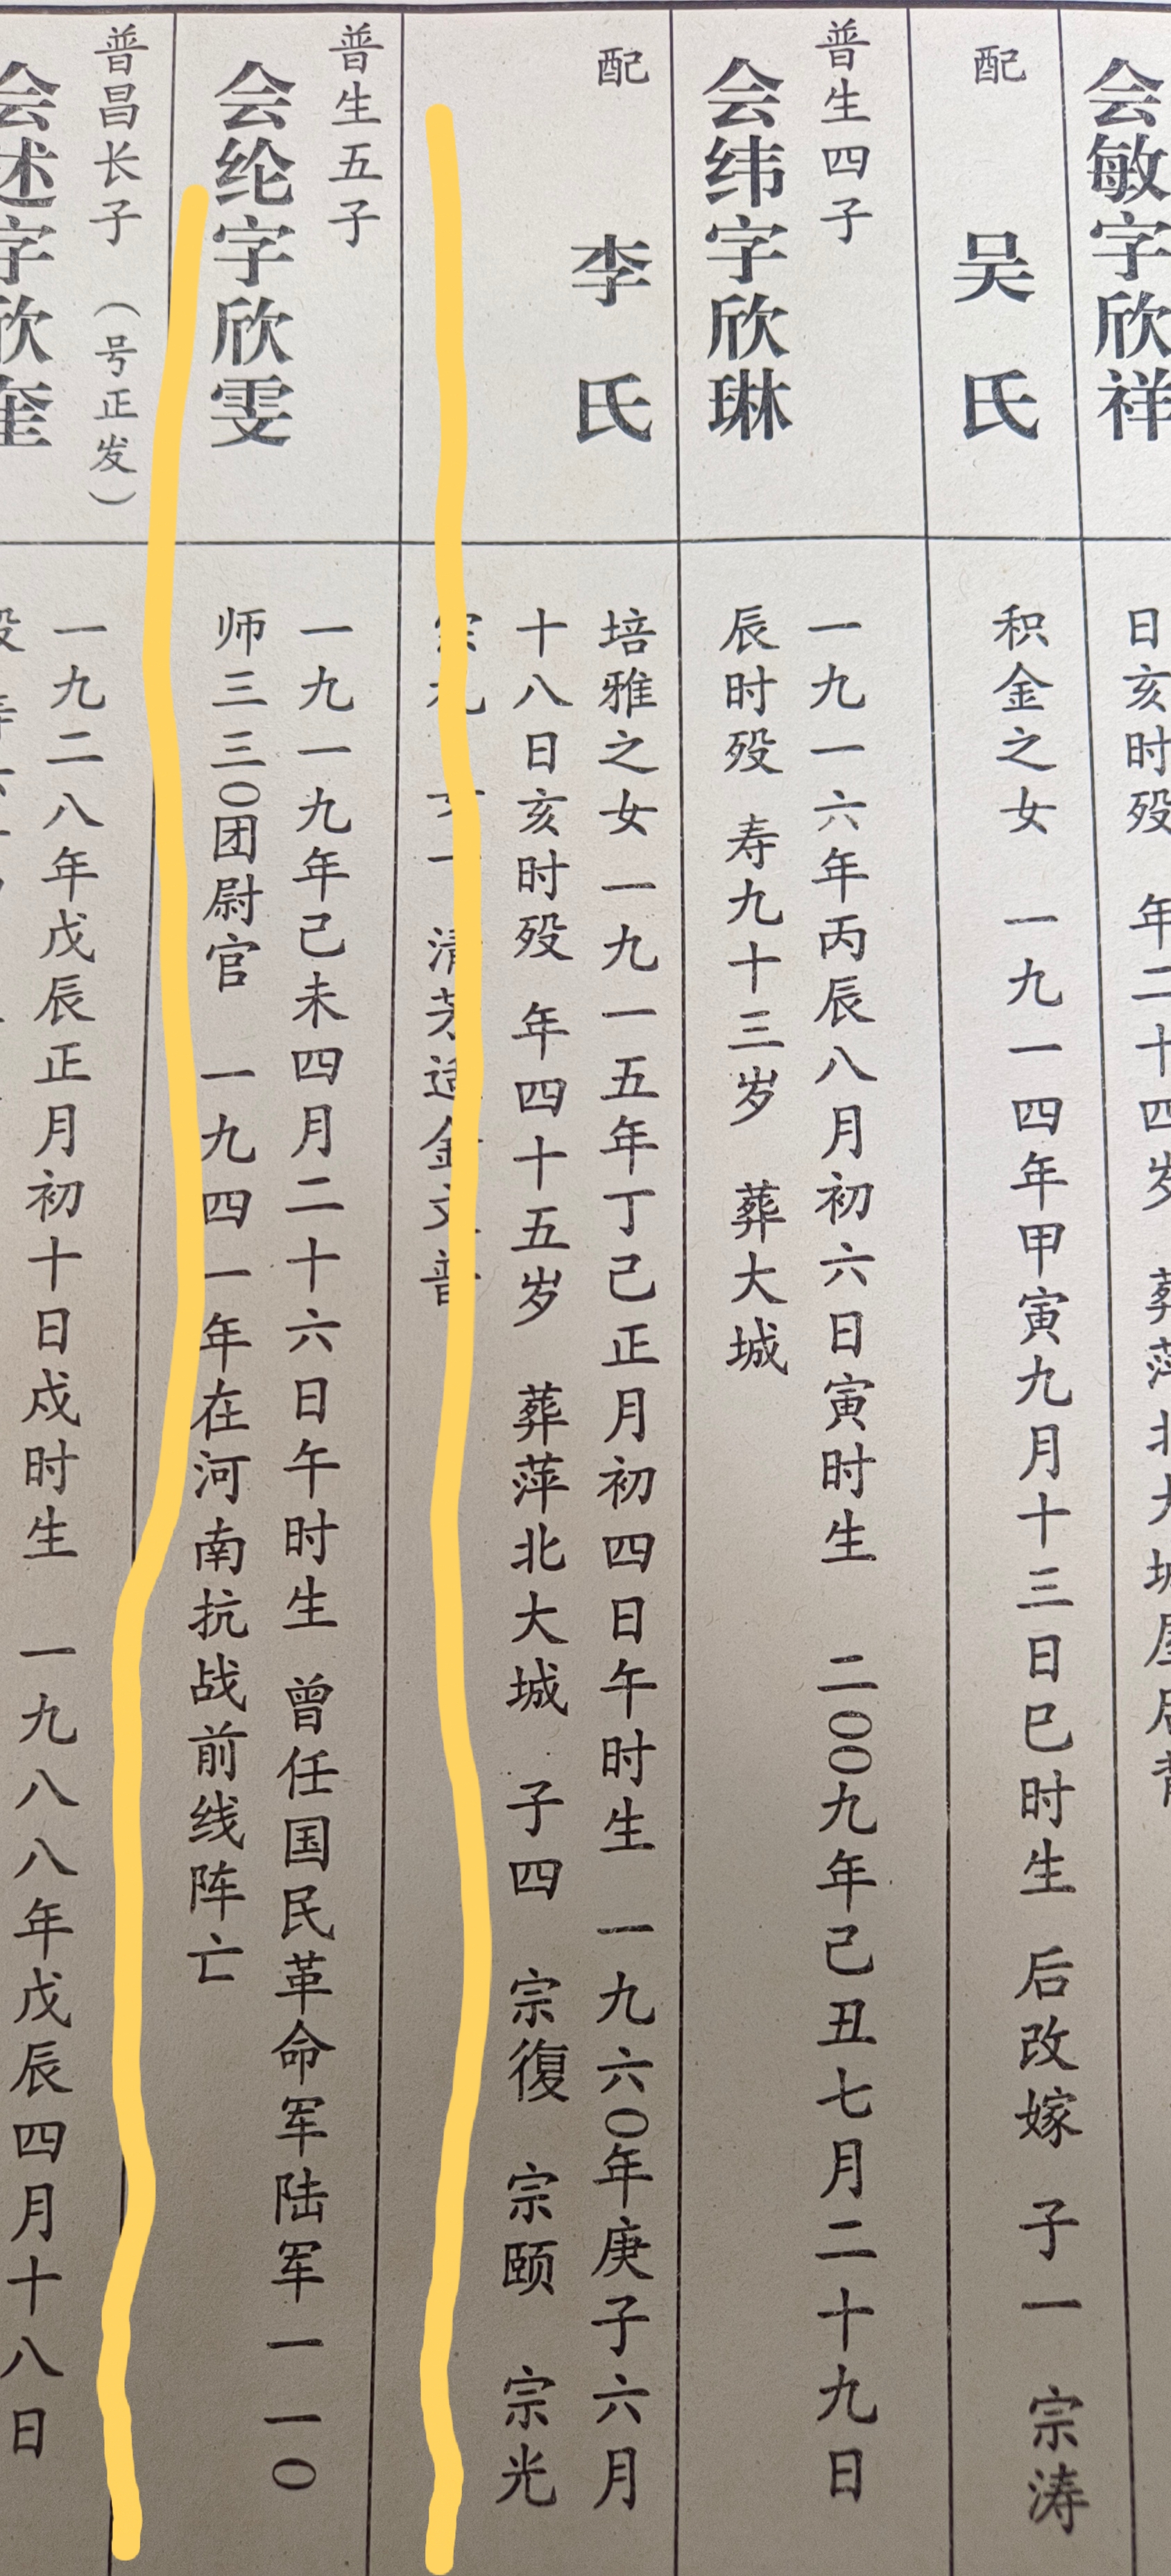 会敏字欣祥
日亥时殁 年二十四岁 葬萍北大城屋后背
配 吴氏
积金之女 一九一四年甲寅九月十三日巳时生 后改嫁 子一 宗涛
普生四子
会纬字欣琳
一九一六年丙辰八月初六日寅时生 二〇〇九年己丑七月二十九日
辰时殁 寿九十三岁 葬大城
配 李氏
培雅之女 一九一五年丁己正月初四日午时生 一九六〇年庚子六月
十八日亥时殁 年四十五岁 葬萍北大城 子四 宗復 宗颐 宗光
宗 女一 清芳适金文普
普生五子
会纶字欣雯
一九一九年己未四月二十六日午时生 曾任国民革命军陆军一一〇
师三三〇团尉官 一九四一年在河南抗战前线阵亡
普昌长子 （号正发）
会述字欣奎
一九二八年戊辰正月初十日戌时生 一九八八年戊辰四月十八日
殁